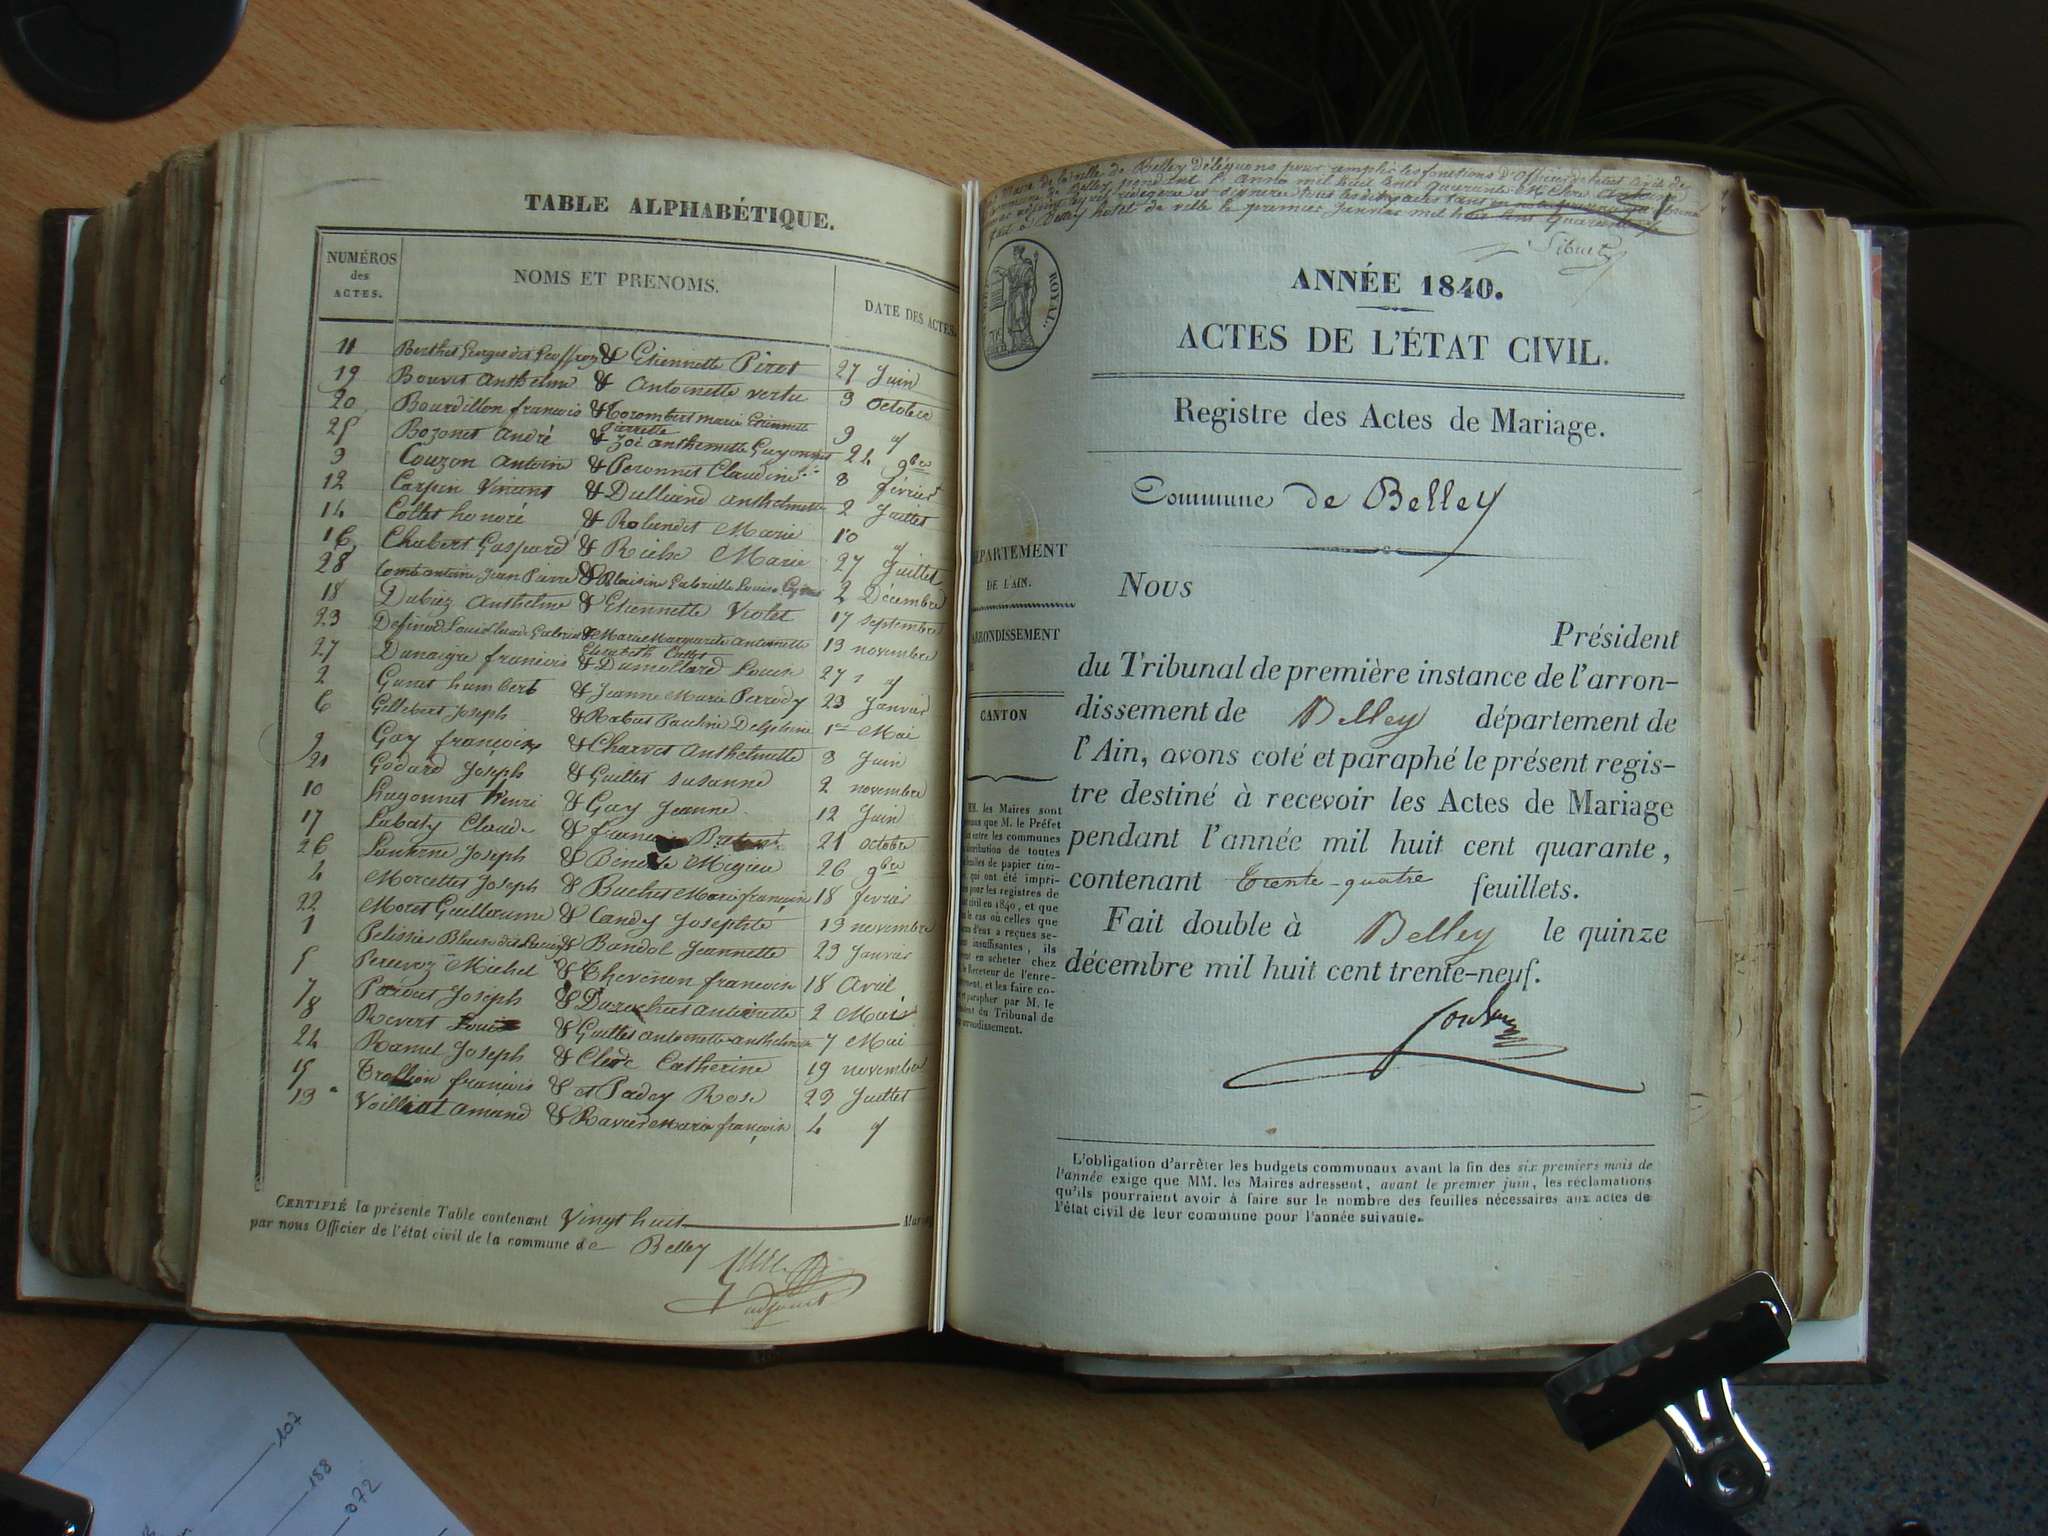 TABLE ALPHABÉTIQUE.
NUMÉROS
des
ACTES.
NOMS ET PRENOMS.
DATE DES ACTES.
11 Berthet Georges dit Geoffroy & Etiennette Pirot 27 Juin
19 Bouvet Anthelme & Antoinette vertu 9 Octobre
20 Bourdillon françois & Corombert marie Etiennette
pierrette 9 "
25 Bozonet André & Zoé Anthelmette Guyonnet 24 9bre
3 Couzon Antoine & Peronnet Claudine 8 février
12 Carpin Vincent & Dulliand Anthelmette 2 Juillet
14 Collet honoré & Rolandet Marie 10 "
16 Chabert Gaspard & Riche Marie 27 Juillet
28 Comb antoine Jean Pierre & Blaisine Gabrielle Louise 2 Décembre
18 Dubiez Anthelme & Etiennette Violet 17 septembre
23 Louis Gabriel & Marie Marguerite antoinette
Elisabeth Cullet 19 novembre
27 françois & Dumollard Louise 27 "
2 Guret humbert & Jeanne Marie Perrody 23 Janvier
6 Gillebert Joseph & Rabut Pauline Delphine 1er Mai
9 Gay françois & Charvet Anthelmette 3 Juin
21 Godard Joseph & Guillet susanne 2 novembre
10 hugonnet henri & Gay Jeanne 12 Juin
17 Labaty Claude & 21 octobre
26 Lanterne Joseph & Megieu 26 9bre
4 Morcellet Joseph & Buchet Marie françoise 18 fevrier
22 Moret Guillaume & Candy Josephte 19 novembre
1 & Bandol Jeannette 23 Janvier
5 Michel & Thevenon françoise 18 Avril
7 Joseph & Durochat Antoinette 2 Mai
8 Revert Louis & Guillet Antoinette anthelmette 7 Mai
24 Ramel Joseph & Clerc Catherine 19 novembre
15 Trollion françois & et Padey Rose 23 Juillet
13 Voilliat Amand & Ravier Marie françoise 4 "
CERTIFIÉ la présente Table contenant Vingt huit
par nous Officier de l'état civil de la commune de Belley
adjoint
Maire de la ville de Belley déléguons pour remplir les fonctions d'Officier de l'état civil de
commune de Belley pendant l'année mil huit cent quarante
fait à Belley hotel de ville le premier Janvier mil huit cent quarante
Sibuet
ROYAL.
ANNÉE 1840.
ACTES DE L'ÉTAT CIVIL.
Registre des Actes de Mariage.
Commune de Belley
DÉPARTEMENT
DE L'AIN.
ARRONDISSEMENT
CANTON
Nous
Président
du Tribunal de première instance de l'arron-
dissement de Belley département de
l'Ain, avons coté et paraphé le présent regis-
tre destiné à recevoir les Actes de Mariage
pendant l'année mil huit cent quarante,
contenant trente-quatre feuillets.
Fait double à Belley le quinze
décembre mil huit cent trente-neuf.
MM. les Maires sont
que M. le Préfet
entre les communes
distribution de toutes
feuilles de papier tim-
qui ont été impri-
pour les registres de
civil en 1840, et que
le cas où celles que
d'eux a reçues se-
insuffisantes, ils
en acheter chez
le Receveur de l'enre-
et les faire co-
parapher par M. le
du Tribunal de
arrondissement.
L'obligation d'arrêter les budgets communaux avant la fin des six premiers mois de
l'année exige que MM. les Maires adressent, avant le premier juin, les réclamations
qu'ils pourraient avoir à faire sur le nombre des feuilles nécessaires aux actes de
l'état civil de leur commune pour l'année suivante.
107
188
072